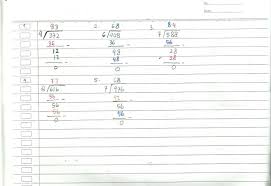 1 93 2. 68 3. 84
4/372 6/408 7/588
36 - 36 - 56 -
12 48 28
12 - 48 - 28 -
0 0 0
77 5. 68
8/616 7/476
56 -
56 56
56 - 56 -
0 0